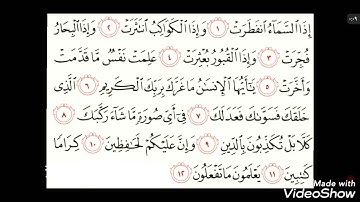 إِذَا السَّمَاءُ انفَطَرَتْ ١ وَإِذَا الْكَوَاكِبُ انتَثَرَتْ ٢ وَإِذَا الْبِحَارُ
فُجِّرَتْ ٣ وَإِذَا الْقُبُورُ بُعْثِرَتْ ٤ عَلِمَتْ نَفْسٌ مَّا قَدَّمَتْ
وَأَخَّرَتْ ٥ يَا أَيُّهَا الْإِنسَانُ مَا غَرَّكَ بِرَبِّكَ الْكَرِيمِ ٦ الَّذِي
خَلَقَكَ فَسَوَّاكَ فَعَدَلَكَ ٧ فِي أَيِّ صُورَةٍ مَّا شَاءَ رَكَّبَكَ ٨
كَلَّا بَلْ تُكَذِّبُونَ بِالدِّينِ ٩ وَإِنَّ عَلَيْكُمْ لَحَافِظِينَ ١٠ كِرَامًا
كَاتِبِينَ ١١ يَعْلَمُونَ مَا تَفْعَلُونَ ١٢
Made with
VideoShow